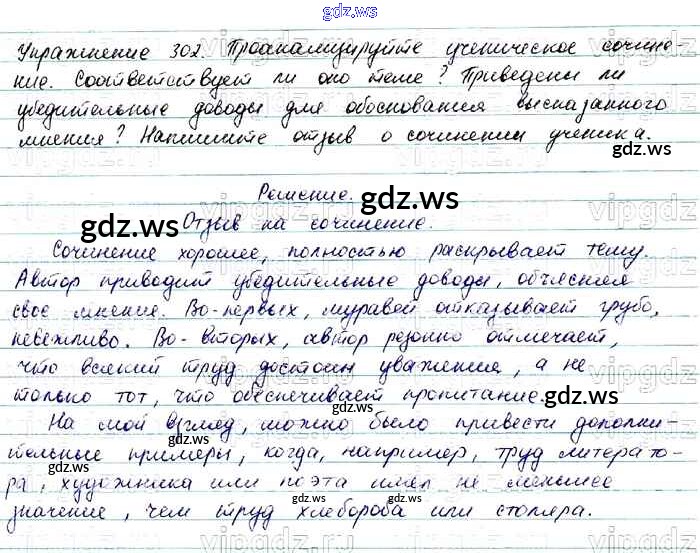 gdz.ws
Упражнение 302. Проанализируйте ученическое сочине-
ние. Соответствует ли оно теме? Приведены ли
убедительные доводы для обоснования высказанного
мнения? Напишите отзыв о сочинении ученика.
Решение.
gdz.ws gdz.ws
Отзыв на сочинение.
Сочинение хорошее, полностью раскрывает тему.
Автор приводит убедительные доводы, объясняя
свое мнение. Во-первых, муравей отказывает грубо,
невежливо. Во-вторых, автор резонно отмечает,
что всякий труд достоин уважения, а не
только тот, что обеспечивает пропитание.
gdz.ws
На мой взгляд, можно было привести дополни-
тельные примеры, когда, например, труд литерато-
ра, художника или поэта имел не меньшее
значение, чем труд хлебороба или столяра.
gdz.ws gdz.ws